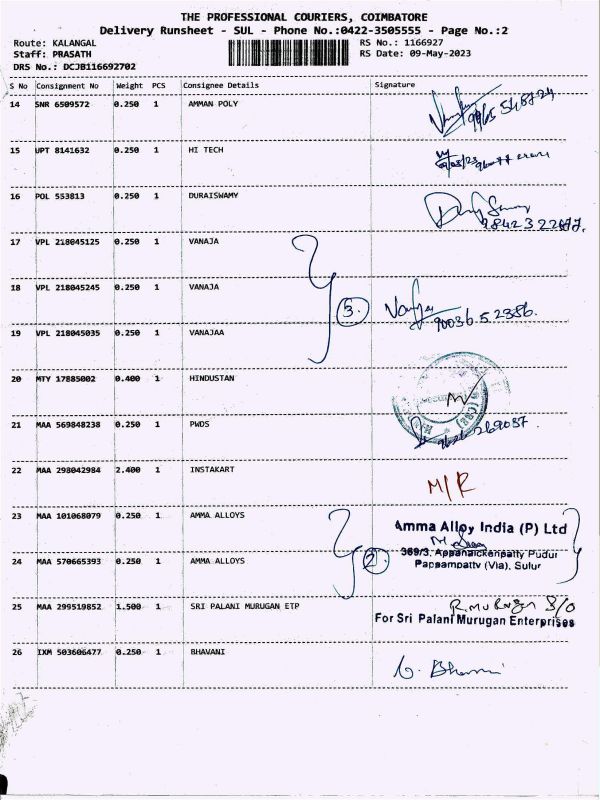 THE PROFESSIONAL COURIERS, COIMBATORE
Delivery Runsheet - SUL - Phone No.:0422-3505555 - Page No.:2
Route: KALANGAL
RS No.: 1166927
Staff: PRASATH
RS Date: 09-May-2023
DRS No.: DCJB116692702
S No Consignment No Weight PCS Consignee Details Signature
14 SNR 6509572 0.250 1 AMMAN POLY
15 UPT 8141632 0.250 1 HI TECH
16 POL 553813 0.250 1 DURAISWAMY
17 VPL 218045125 0.250 1 VANAJA
18 VPL 218045245 0.250 1 VANAJA
3.
19 VPL 218045035 0.250 1 VANAJAA
20 MTY 17885002 0.400 1 HINDUSTAN
21 MAA 569848238 0.250 1 PWDS
22 MAA 298042984 2.400 1 INSTAKART M/R
23 MAA 101068079 0.250 1 AMMA ALLOYS Amma Alloy India (P) Ltd
369/3, Appanaickenpatty Pudur
24 MAA 570665393 0.250 1 AMMA ALLOYS 2. Pappampatty (Via), Sulur
25 MAA 299519852 1.500 1 SRI PALANI MURUGAN ETP
For Sri Palani Murugan Enterprises
26 IXM 503606477 0.250 1 BHAVANI